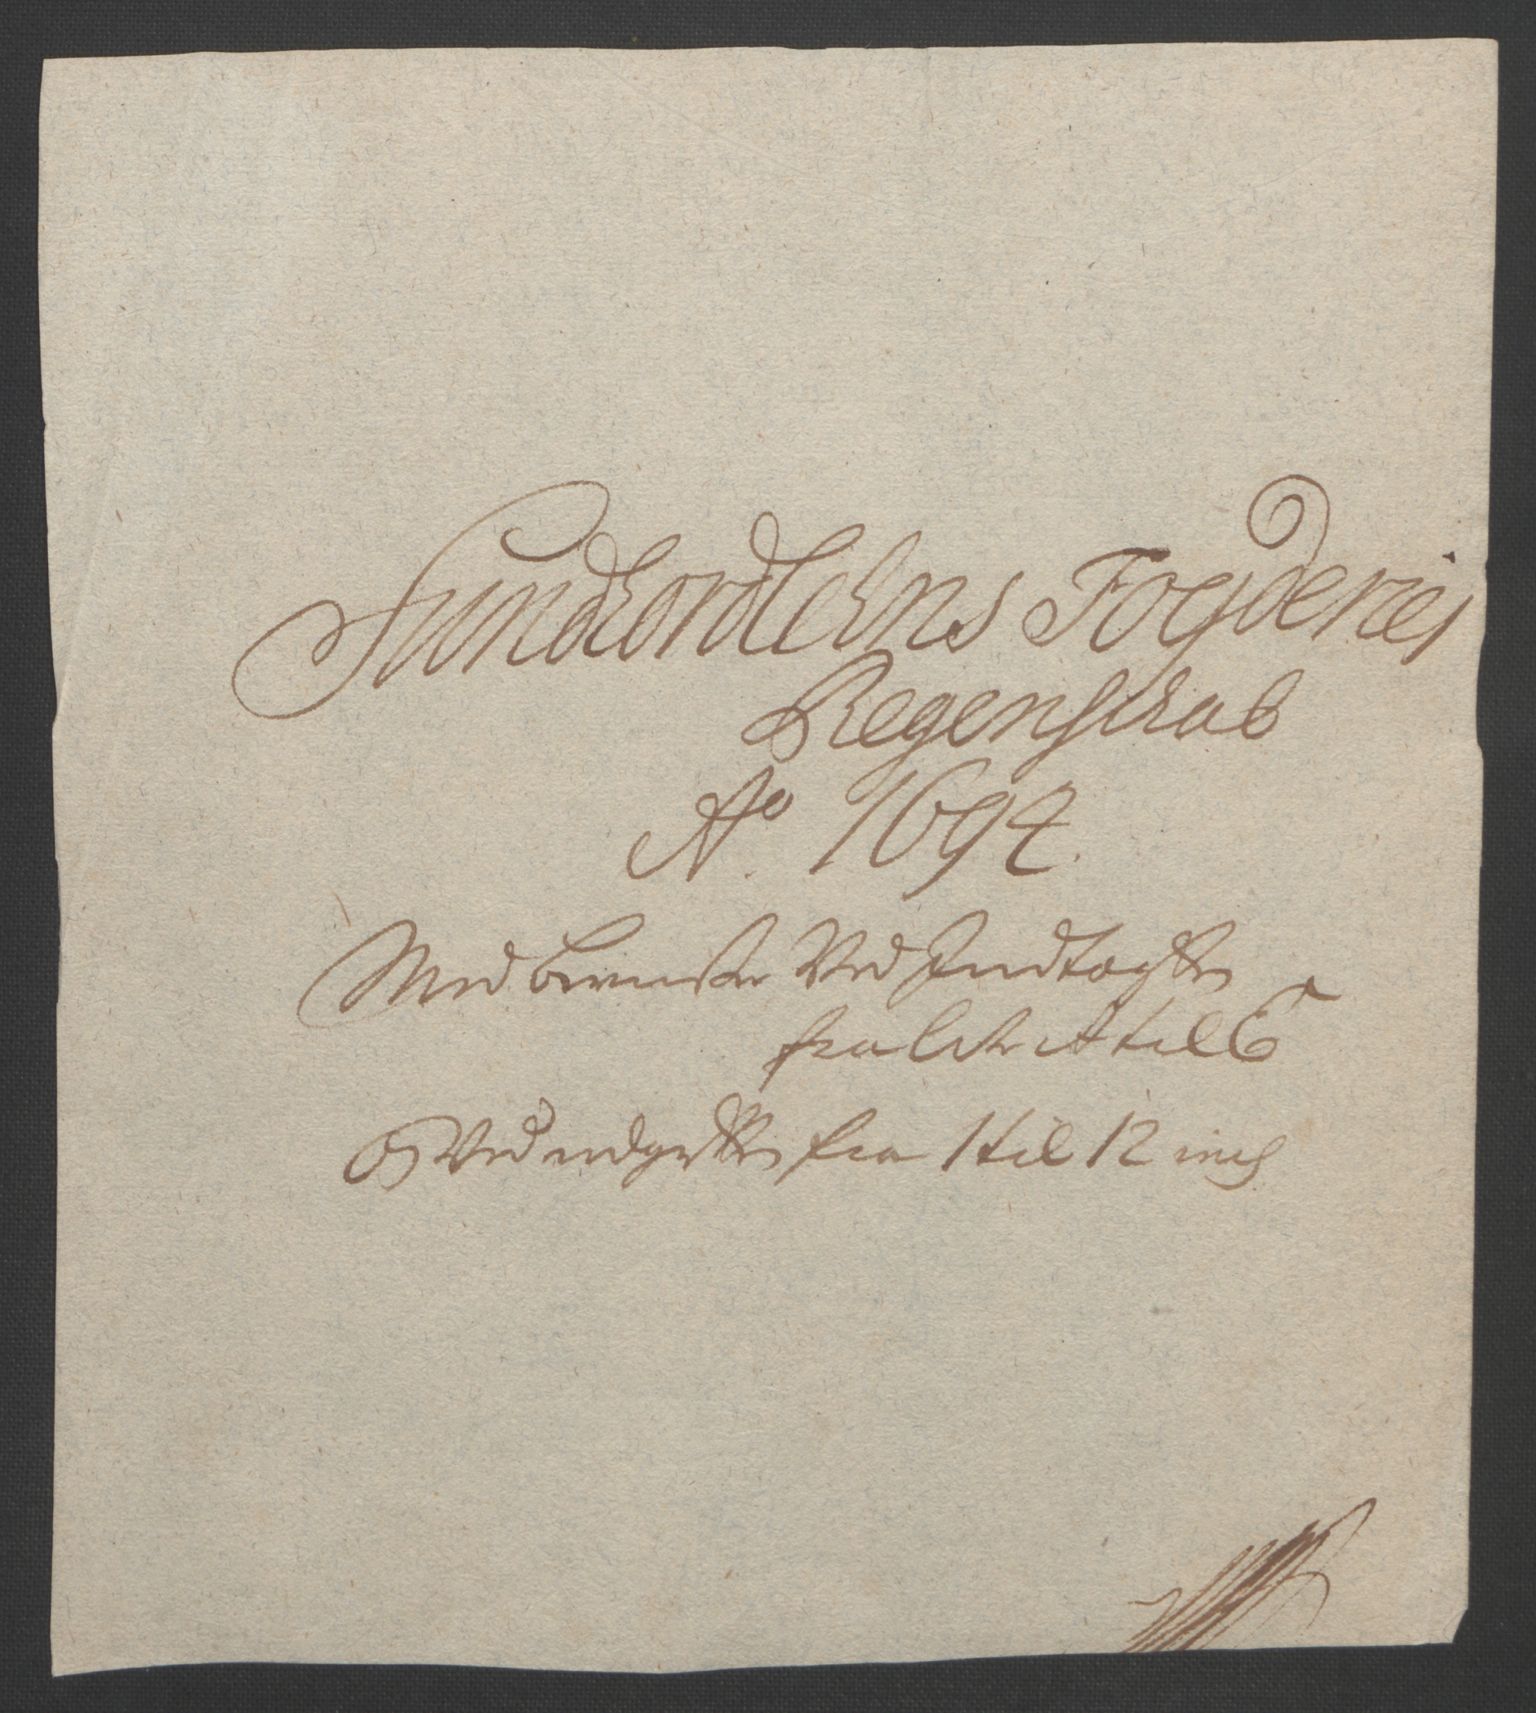 Sundhordlehns Fogderies
Regenschab
Ao. 1694.
Med beviiser Ved Indtogten
fra Litr A til G
og Ved udgiften fra 1 til 12 incl